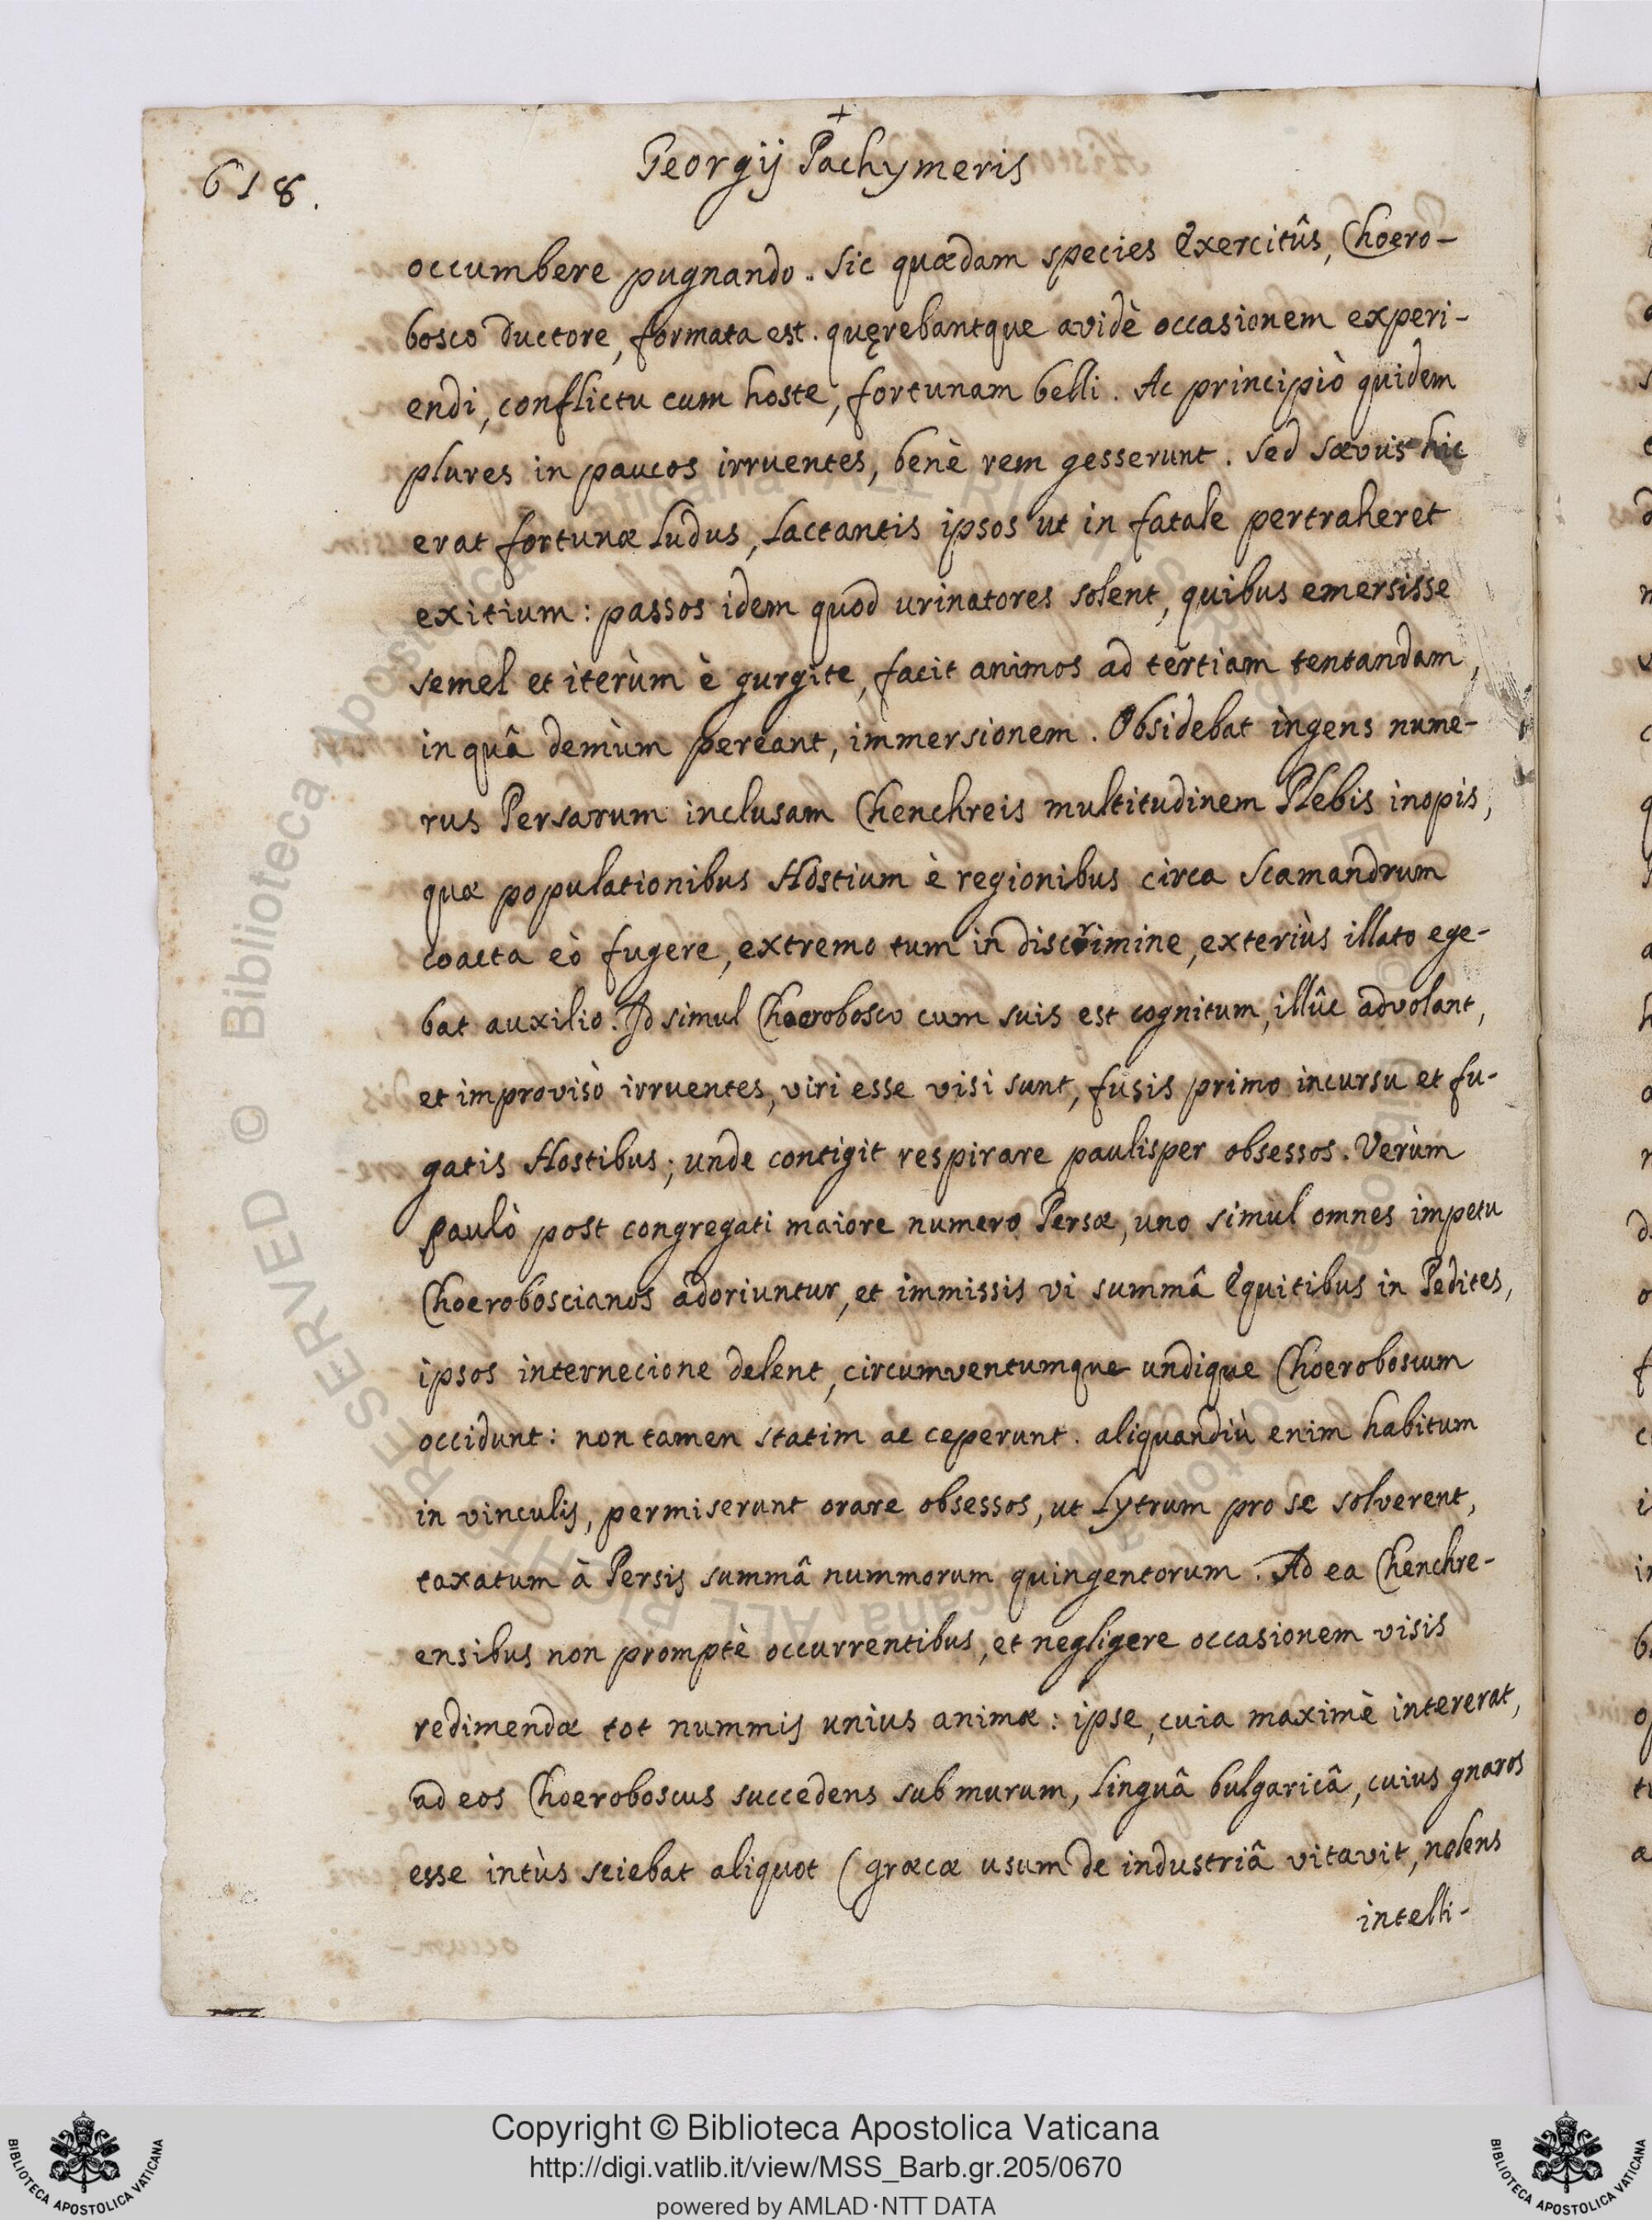 +
618.
Georgij Pachymeris
occumbere pugnando. Sic quædam species Exercitûs, Choero-
bosco ductore, formata est. quęrebantque avidè occasionem experi-
endi, conflictu cum hoste, fortunam belli. Ac principiò quidem
plures in paucos irruentes, benè rem gesserunt. Sed sævus hic
erat fortunæ Ludus, Lactantis ipsos ut in fatale pertraheret
exitium: passos idem quod urinatores solent, quibus emersisse
semel et iterùm è gurgite, facit animos ad tertiam tentandam,
in quâ demùm pereant, immersionem. Obsidebat ingens nume-
rus Persarum inclusam Chenchreis multitudinem Plebis inopis,
quæ populationibus Hostium è regionibus circa Scamandrum
coacta eò fugere, extremo tum in discrimine, exteriùs illato ege-
bat auxilio. Id simul Choerobosco cum suis est cognitum, illûc advolant,
et improvisò irruentes, viri esse visi sunt, fusis primo incursu et fu-
gatis Hostibus; unde contigit respirare paulisper obsessos. Verùm
paulò post congregati maiore numero Persæ, uno simul omnes impetu
Choeroboscianos adoriuntur, et immissis vi summâ Equitibus in Pedites,
ipsos internecione delent, circumventumque undique Choeroboscum
occidunt: non tamen statim ac ceperunt. aliquandiù enim habitum
in vinculis, permiserunt orare obsessos, ut Lytrum pro se solverent,
taxatum à Persis summâ nummorum quingentorum. Ad ea Chenchre-
ensibus non promptè occurrentibus, et negligere occasionem visis
redimendæ tot nummis unius animæ: ipse, cuia maximè intererat,
ad eos Choeroboscus succedens sub murum, Linguâ bulgaricâ, cuius gnaros
esse intùs sciebat aliquot (græcæ usum de industriâ vitavit, nolens
intelli-
Copyright © Biblioteca Apostolica Vaticana
http://digi.vatlib.it/view/MSS_Barb.gr.205/0670
powered by AMLAD·NTT DATA
BIBLIOTECA APOSTOLICA VATICANA
BIBLIOTECA APOSTOLICA VATICANA